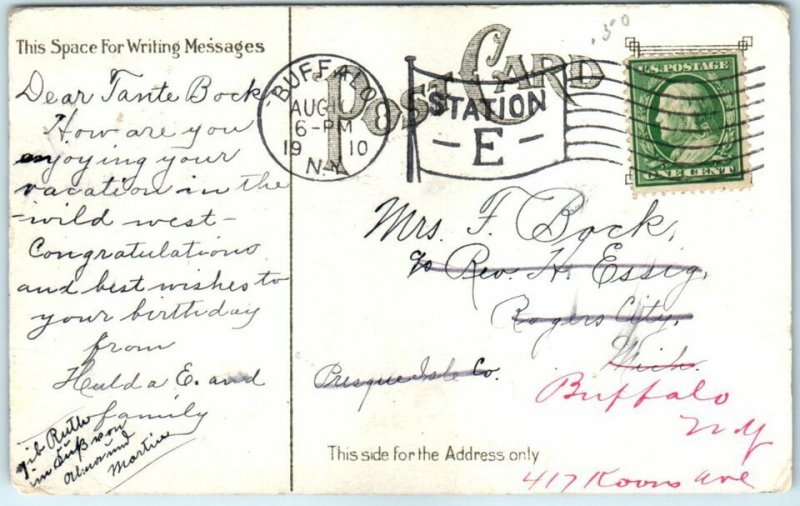 This Space For Writing Messages
Dear Tante Bock
How are you
enjoying your
vacation in the
-wild west-
Congratulations
and best wishes to
your birthday
from
Hulda E. and
family
gib Ruth
von
und
Martin
.50
POST CARD
BUFFALO
AUG
6-PM
19 10
N.Y.
STATION
- E -
U.S. POSTAGE
ONE CENT
Mrs. F. Bock,
c/o Rev. H. Essig,
Rogers City,
Mich.
Presque Isle Co.
Buffalo
N Y
417 Koons Ave
This side for the Address only